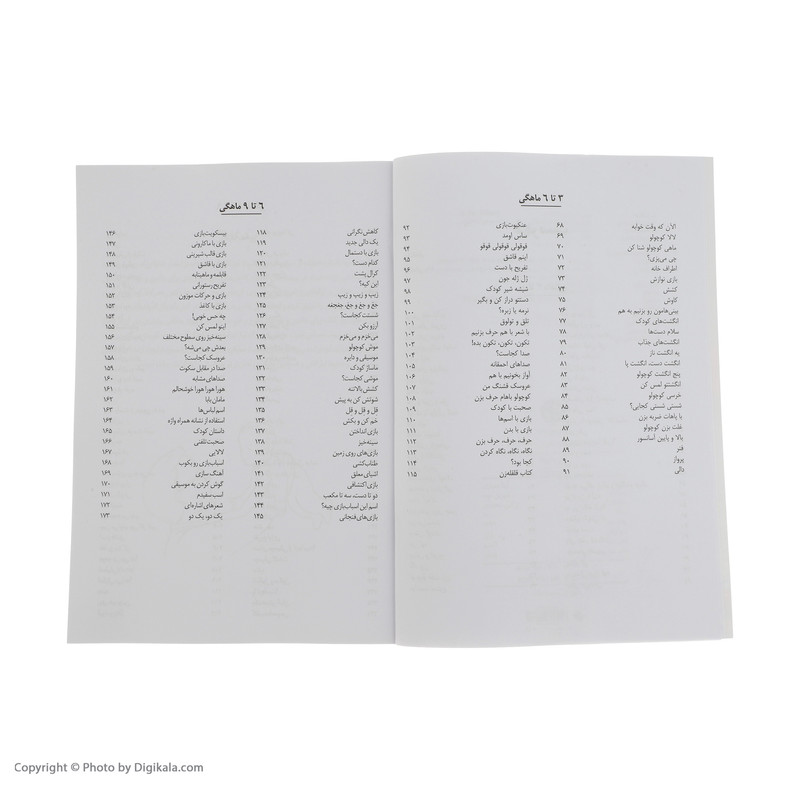 ۳ تا ۶ ماهگی
الان که وقت خوابه ۶۸
لالا کوچولو ۶۹
ماهی کوچولو شنا کن ۷۰
چی می‌پزی؟ ۷۱
اطراف خانه ۷۲
بازی نوازش ۷۳
کشش ۷۴
کاوش ۷۵
بینی‌هامون رو بزنیم به هم ۷۶
انگشت‌های کودک ۷۷
سلام دست‌ها ۷۸
انگشت‌های جذاب ۷۹
یه انگشت ناز ۸۰
انگشت دست، انگشت پا ۸۱
پنج انگشت کوچولو ۸۲
انگشتتو لمس کن ۸۳
خرسی کوچولو ۸۴
شستی شستی کجایی؟ ۸۵
با پاهات ضربه بزن ۸۶
غلت بزن کوچولو ۸۷
بالا و پایین آسانسور ۸۸
فنر ۸۹
پرواز ۹۰
دالی ۹۱
عنکبوت‌بازی ۹۲
ساس اومد ۹۳
قوقولی قوقولی قوقو ۹۴
اینم قاشق ۹۵
تفریح با دست ۹۶
ژل ژله جون ۹۷
شیشه شیر کودک ۹۸
دستتو دراز کن و بگیر ۹۹
نرمه یا زبره؟ ۱۰۰
تلق و تولوق ۱۰۱
با شعر با هم حرف بزنیم ۱۰۲
تکون، تکون، تکون بده! ۱۰۳
صدا کجاست؟ ۱۰۴
صداهای احمقانه ۱۰۵
آواز بخونیم با هم ۱۰۶
عروسک قشنگ من ۱۰۷
کوچولو باهام حرف بزن ۱۰۸
صحبت با کودک ۱۰۹
بازی با اسم‌ها ۱۱۰
بازی با بدن ۱۱۱
حرف، حرف، حرف بزن ۱۱۲
نگاه، نگاه، نگاه کردن ۱۱۳
کجا بود؟ ۱۱۴
کتاب قلقله‌زن ۱۱۵
۶ تا ۹ ماهگی
کاهش نگرانی ۱۱۸
یک دالی جدید ۱۱۹
بازی با دستمال ۱۲۰
کدام دست؟ ۱۲۱
کرال پشت ۱۲۲
این کیه؟ ۱۲۳
زیپ و زیپ و زیپ ۱۲۴
جغ و جغ و جغ، جغجغه ۱۲۵
شستت کجاست؟ ۱۲۶
آرزو بکن ۱۲۷
می‌خزم و می‌خزم ۱۲۸
موش کوچولو ۱۲۹
موسیقی و دایره ۱۳۰
ماساژ کودک ۱۳۱
موشی کجاست؟ ۱۳۲
کشش بالاتنه ۱۳۳
شوتش کن به پیش ۱۳۴
قل و قل و قل ۱۳۵
خم کن و بکش ۱۳۶
بازی انداختن ۱۳۷
سینه‌خیز ۱۳۸
بازی‌های روی زمین ۱۳۹
طناب‌کشی ۱۴۰
اشیای معلق ۱۴۱
بازی اکتشافی ۱۴۲
دو تا دست، سه تا مکعب ۱۴۳
اسم این اسباب‌بازی چیه؟ ۱۴۴
بازی‌های فنجانی ۱۴۵
بیسکویت‌بازی ۱۴۶
بازی با ماکارونی ۱۴۷
بازی قالب شیرینی ۱۴۸
بازی با قاشق ۱۴۹
قابلمه و ماهیتابه ۱۵۰
تفریح رستورانی ۱۵۱
بازی و حرکات موزون ۱۵۲
بازی با کاغذ ۱۵۳
چه حس خوبی! ۱۵۴
اینو لمس کن ۱۵۵
سینه‌خیز روی سطوح مختلف ۱۵۶
بعدش چی می‌شه؟ ۱۵۷
عروسک کجاست؟ ۱۵۸
صدا در مقابل سکوت ۱۵۹
صداهای مشابه ۱۶۰
هورا هورا هورا خوشحالم ۱۶۱
مامان بابا ۱۶۲
اسم لباس‌ها ۱۶۳
استفاده از نشانه همراه واژه ۱۶۴
داستان کودک ۱۶۵
صحبت تلفنی ۱۶۶
لالایی ۱۶۷
اسباب‌بازی رو بکوب ۱۶۸
آهنگ سازی ۱۶۹
گوش کردن به موسیقی ۱۷۰
اسب سفیدم ۱۷۱
شعرهای اشاره‌ای ۱۷۲
یک دو، یک دو ۱۷۳
Copyright © Photo by Digikala.com